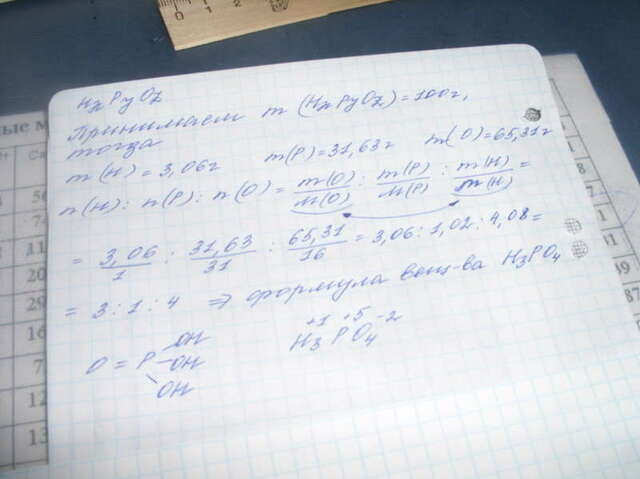 0 1 2
HxPyOz
Принимаем m (HxPyOz) = 100г,
тогда
m (H) = 3,06г m(P) = 31,63г m(O) = 65,31г
n(H) : n(P) : n(O) = m(O)/M(O) : m(P)/M(P) : m(H)/M(H) =
= 3,06/1 : 31,63/31 : 65,31/16 = 3,06 : 1,02 : 4,08 =
= 3 : 1 : 4 ⇒ формула вещ-ва H3PO4
+1 +5 -2
H3PO4
OH
O = P - OH
OH
ные м
20
29
16
7
12
13